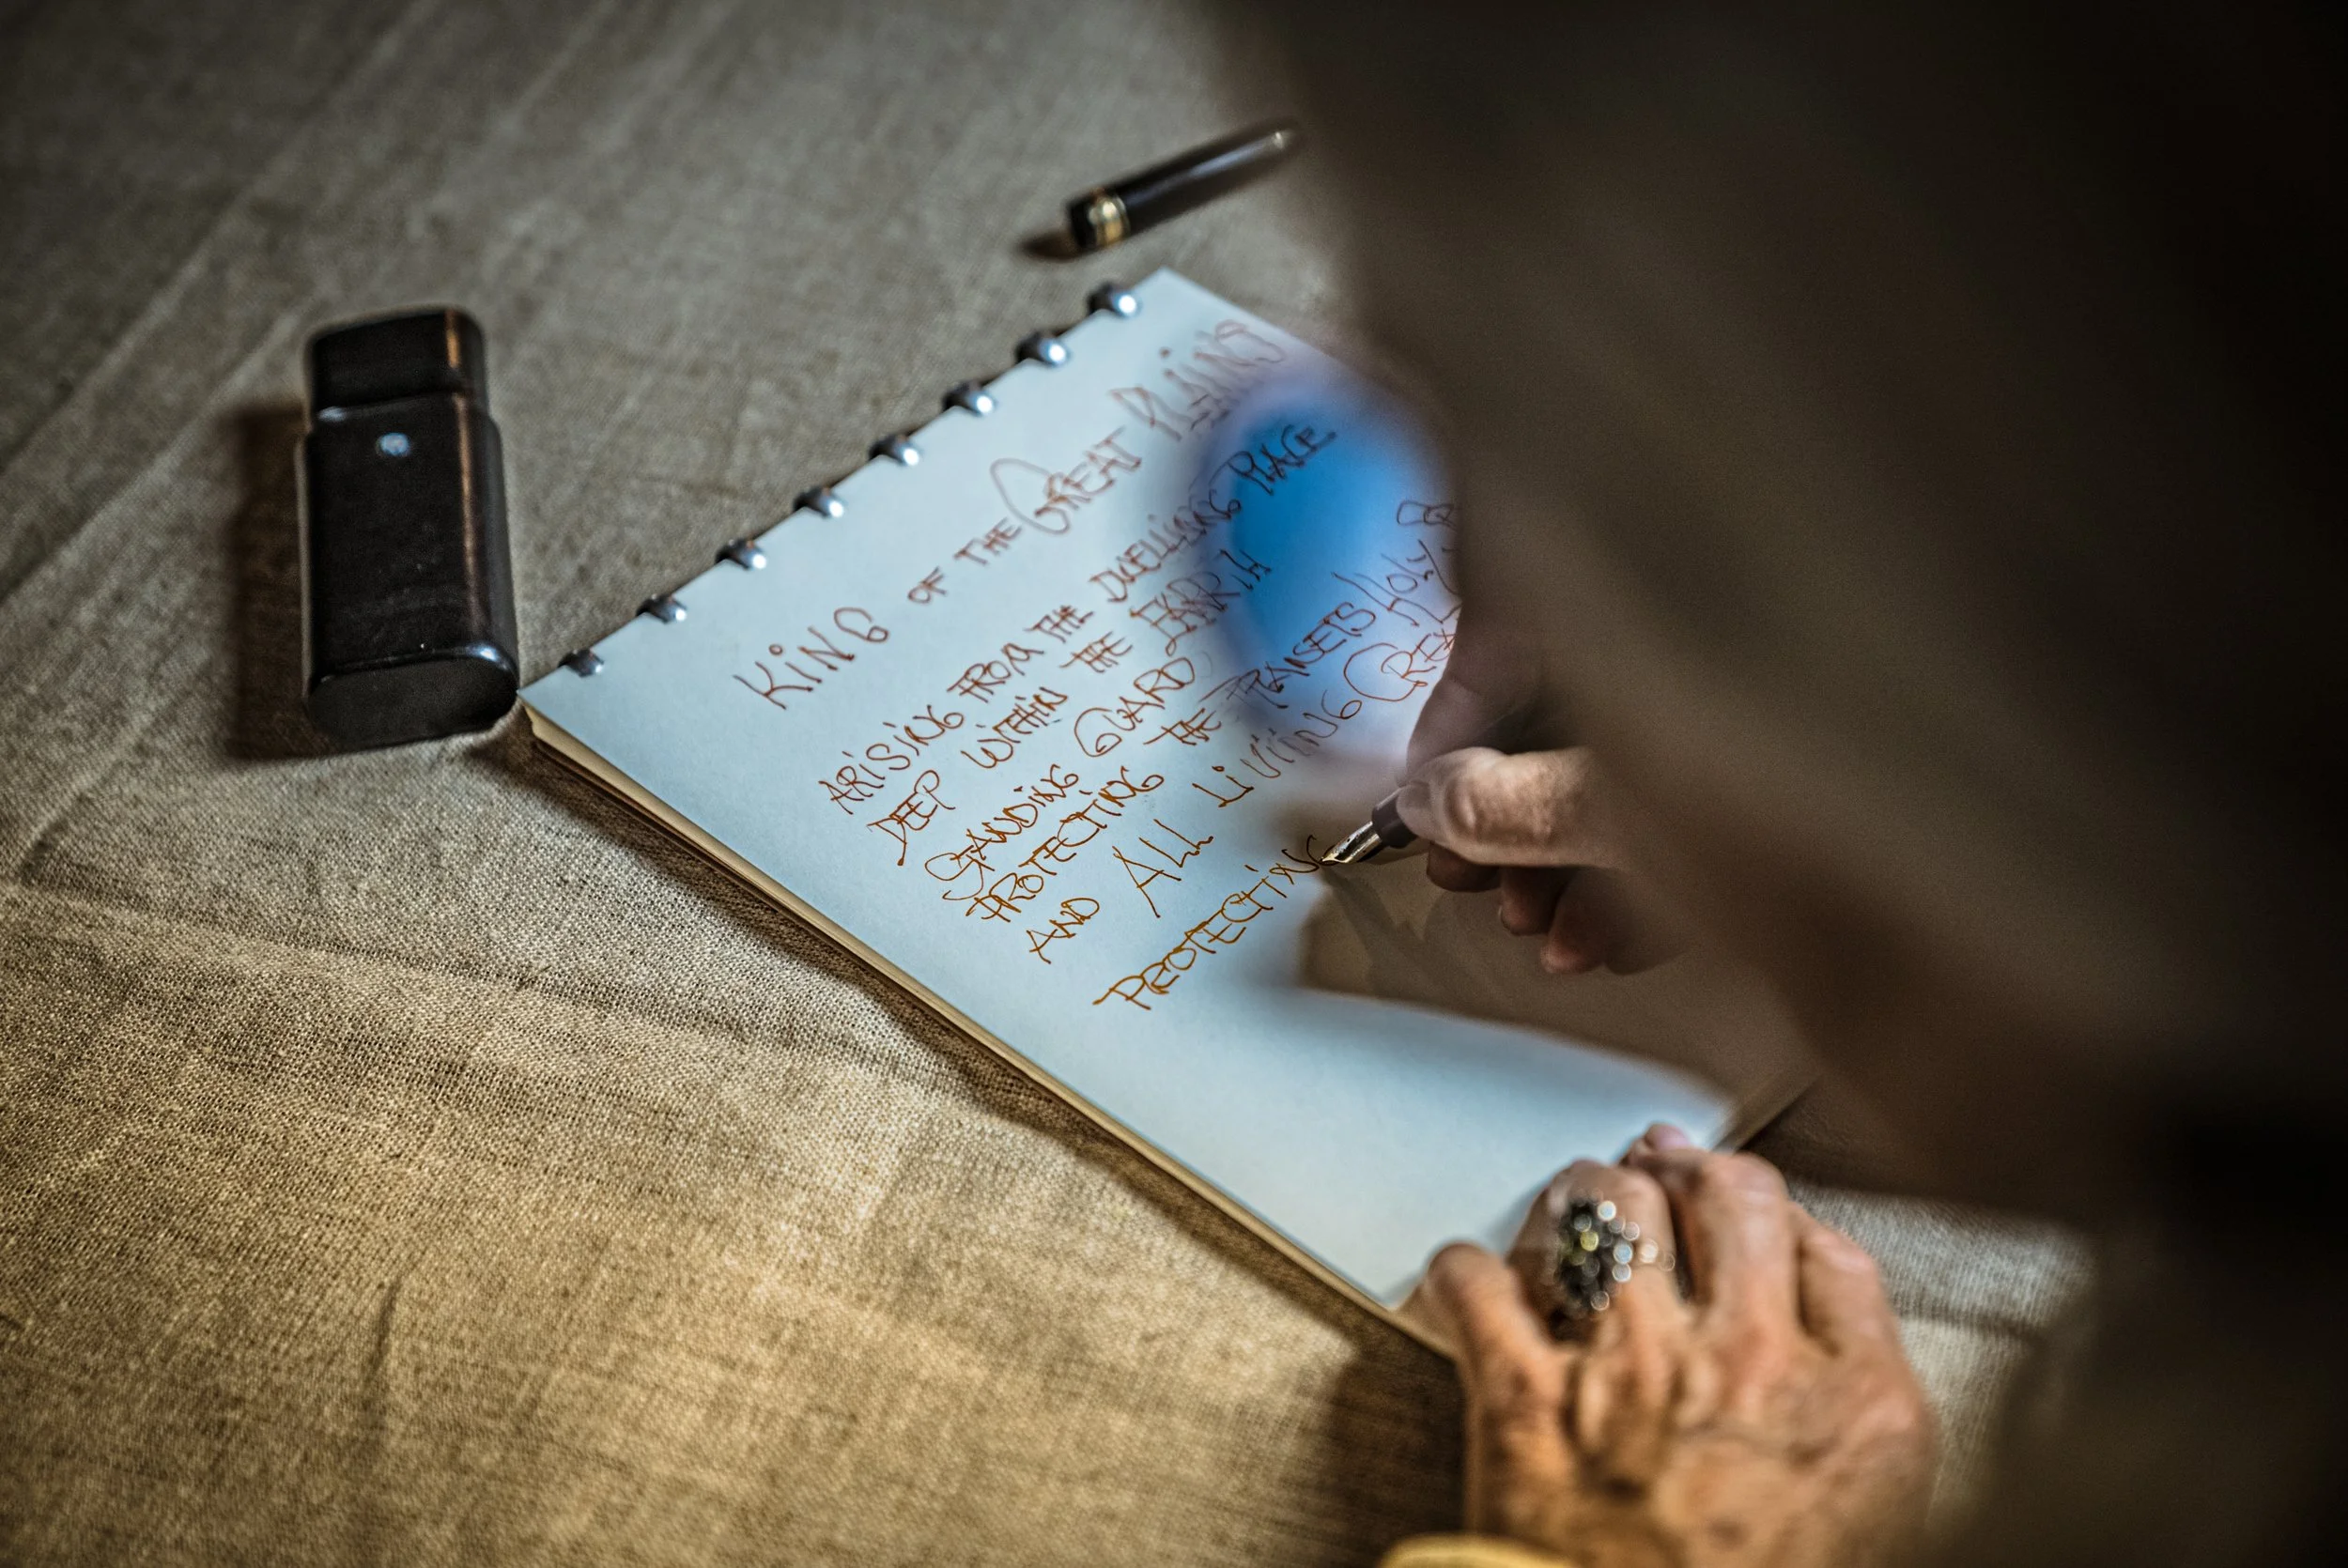 KiNG OF THE GREAT PLAiNS
ARiSiNG FROM THE DWELLiNG PLACE
DEEP WiTHiN THE EARTH
STANDiNG GUARD
PROTECTiNG THE PLANETS HOLY
AND ALL LiViNG
PROTECTiNG